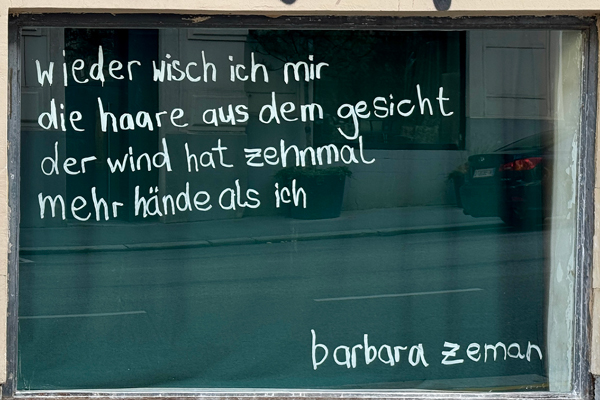 wieder wisch ich mir
die haare aus dem gesicht
der wind hat zehnmal
mehr hände als ich
barbara zeman